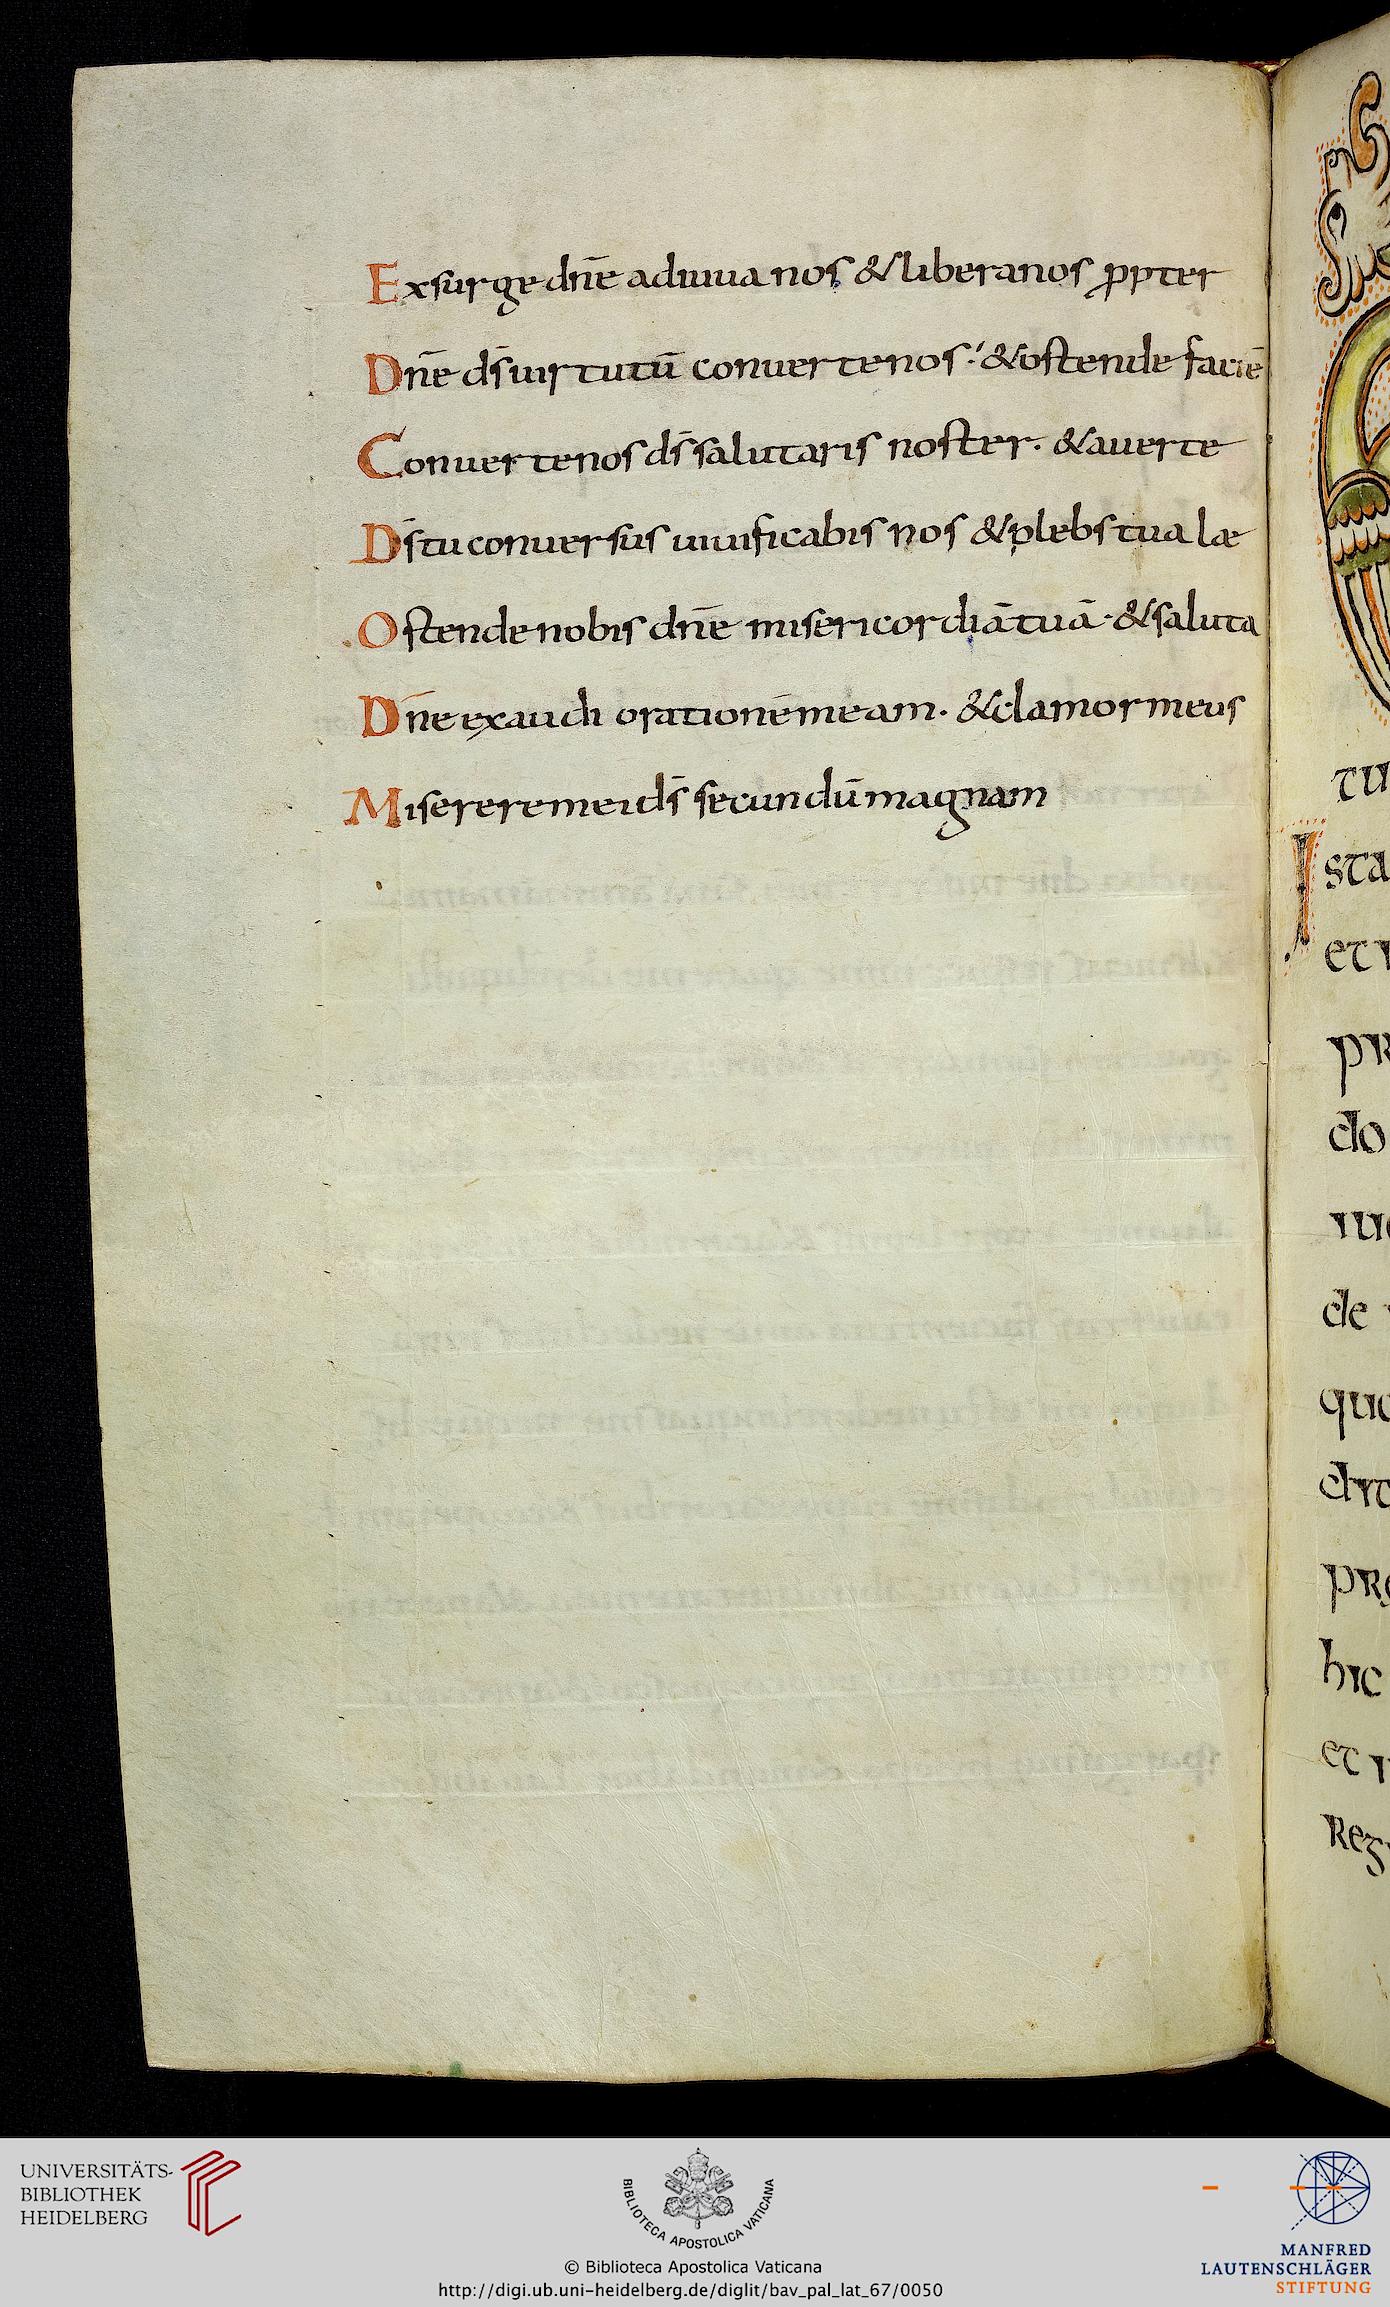 Exsurge dn̄e adiuua nos & libera nos ꝓpter
Dn̄e ds̄ uirtutū conuerte nos·́ & ostende faciē
Conuerte nos ds̄ salutaris noster· & auerte
Ds̄ tu conuersus uiuificabis nos & plebs tua læ
Ostende nobis dn̄e misericordiā tuā· & saluta
Dn̄e exaudi orationē meam· & clamor meus
Misereremei ds̄ secundū magnam
tu
Ista
et
pr
do
de
quo
pre
hic
et
Reg
UNIVERSITÄTS-
BIBLIOTHEK
HEIDELBERG
BIBLIOTECA APOSTOLICA VATICANA
© Biblioteca Apostolica Vaticana
http://digi.ub.uni-heidelberg.de/diglit/bav_pal_lat_67/0050
MANFRED
LAUTENSCHLÄGER
STIFTUNG